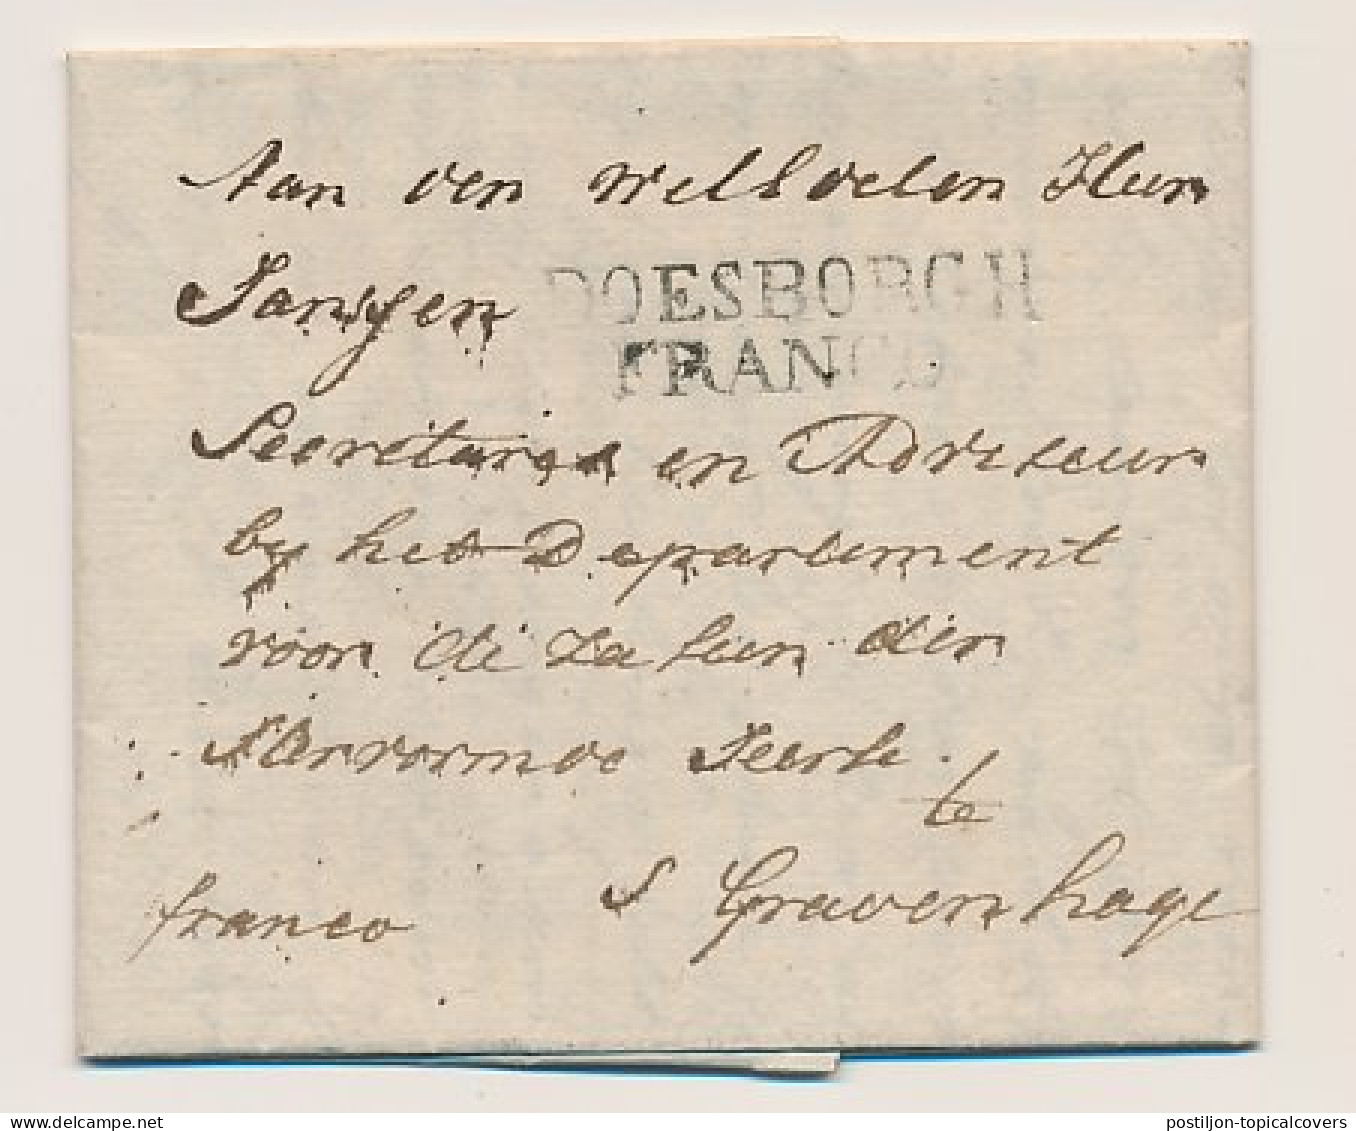 Aan den WelEdelen Heer
Janssen
DOESBORGH
FRANCO
Secretaris en Adviseur
by het Departement
voor de Zaken der
Hervormde Keerk.
te
s Gravenhage
franco
delcampe.net
postiljon-topicalcovers